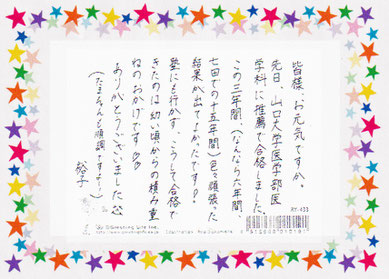 皆様、お元気ですか。
先日、山口大学医学部医
学科に推薦で合格しました。
この三年間、(なんなら六年間、
七田での十五年間)色々頑張った
結果が出てよかったです!
塾にも行かず、こうして合格で
きたのは幼い頃からの積み重
ねのおかげです♡♡
ありがとうございました
も順調ですよー)
裕子